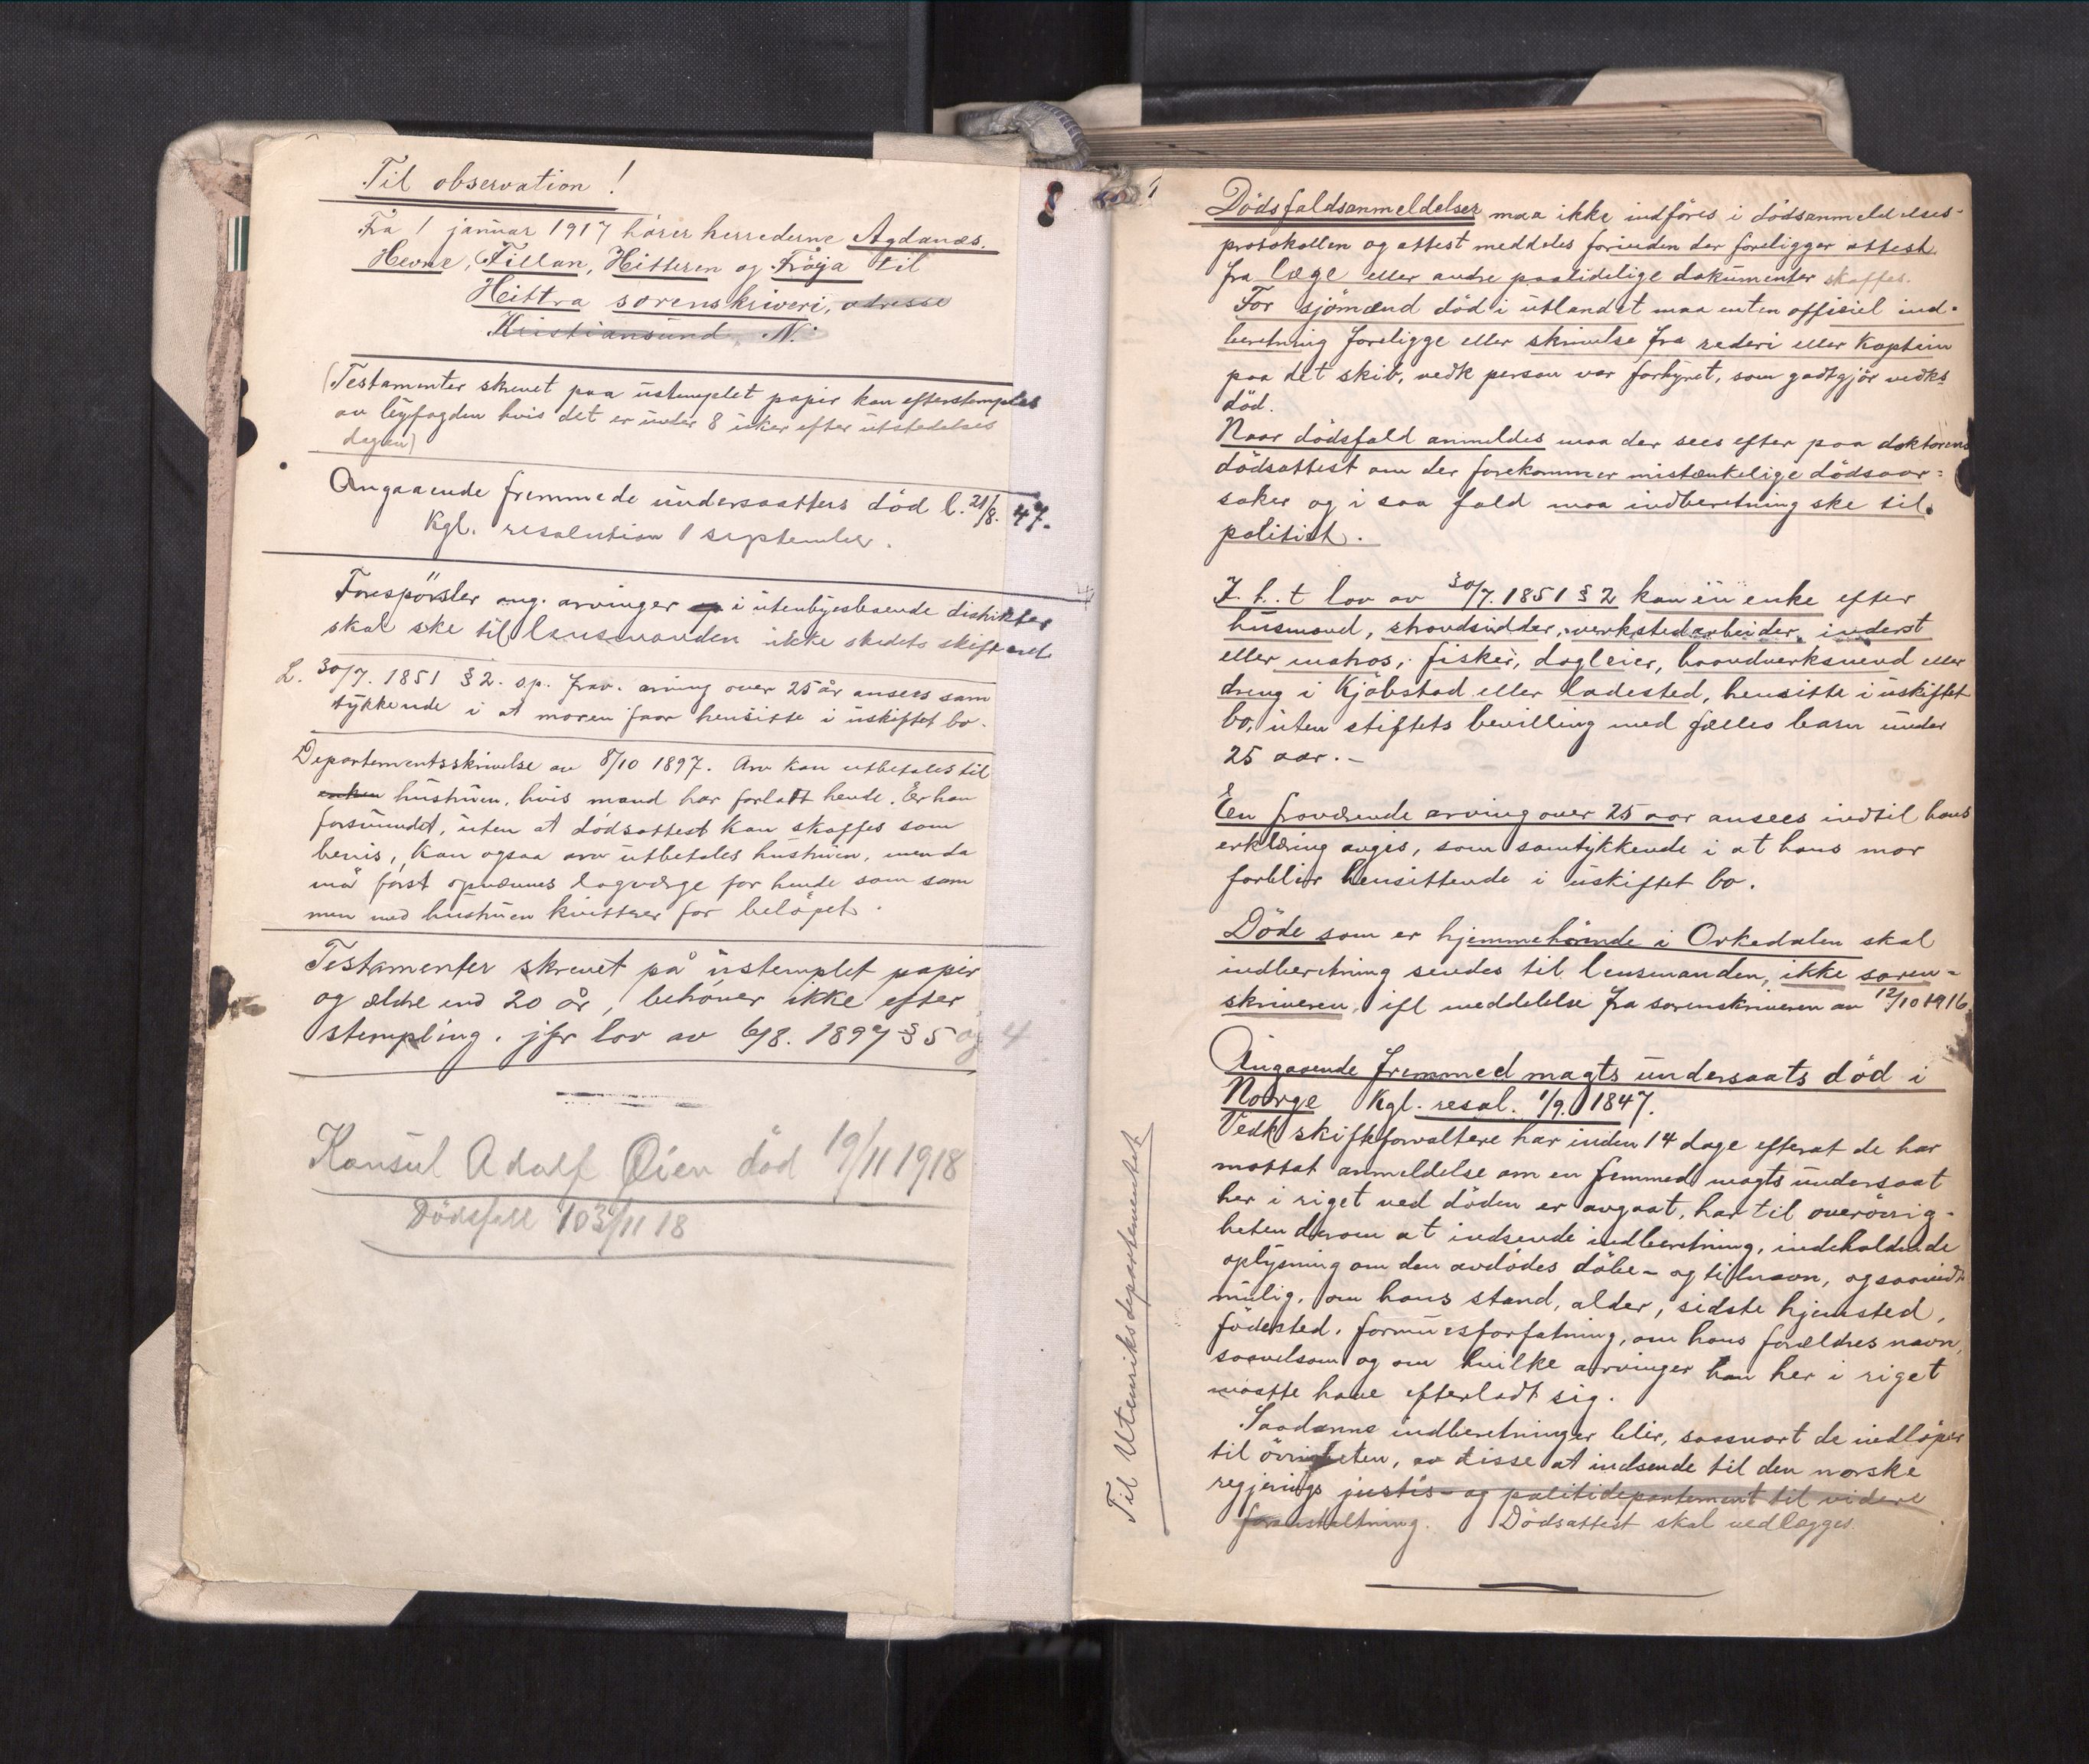 Til observation!
Fra 1 januar 1917 hører herrederne Agdanæs.
Hevne, Fillan, Hitteren og Fröya til
Hittra sorenskriveri, adresse
Kristiansund N.
(Testamenter skrevet paa ustemplet papir kan efterstemples
av byfogden hvis det er under 8 uker efter utstedelses
dagen)
Angaaende fremmede undersaatters död l. 21/8. 47.
Kgl. resolution 1 september.
Forespörsler ang. arvinger i utenbyesboende distrikter
skal ske til lensmanden ikke stedets skifteret
L. 30/7. 1851 § 2. op. frav. arving over 25 år ansees sam
tykkende i at moren faar hensitte i uskiftet bo.
Departementsskrivelse av 8/10 1897. Arv kan utbetales til
enken hustruen, hvis mand har forlatt hende. Er han
forsvundet, uten at dödsattest kan skaffes som
bevis, kan ogsaa arv utbetales hustruen, men da
må först opnævnes lagværge for hende som sam
men med hustruen kvitterer for belöpet.
Testamenter skrevet på ustemplet papir
og ældre end 20 år, behöver ikke efter
stempling. jfr lov av 6/8. 1897 § 5 og 4
Konsul Adolf Øien död 19/11 1918
Dödsfall 103/11 18
1
Dödsfaldsanmeldelser maa ikke indföres i dödsanmeldelses-
protokollen og attest meddeles forinden der foreligger attest
fra læge eller andre paalidelige dokumenter skaffes.
For sjömænd död i utlandet maa enten officiel ind-
beretning foreligge eller skrivelse fra rederi eller kaptein
paa det skib, vedk person var forhyret, som godtgjör vedks
död.
Naar dödsfald anmeldes maa der sees efter paa doktorens
dödsattest om der forekommer mistænkelige dödsaar-
saker og i saa fald maa indberetning ske til
politiet.
I. h. t lov av 30/7. 1851 § 2 kan en enke efter
husmand, strandsidder, verkstedarbeider, inderst
eller matros, fisker, dagleier, haandverksvend eller
dreng i Kjöbstad eller ladested, hensitte i uskiftet
bo, uten stiftets bevilling med fælles barn under
25 aar. -
En fraværende arving over 25 aar ansees indtil hans
erklæring avgis, som samtykkende i at hans mor
forblir hensittende i uskiftet bo.
Döde som er hjemmehörende i Orkedalen skal
indberetning sendes til lensmanden, ikke soren-
skriveren, ifl meddelelse fra sorenskriveren av 12/10 1916.
Angaaende fremmed magts undersaats död i
Norge Kgl. resol. 1/9. 1847.
Vedk skifteforvaltere har inden 14 dage efterat de har
mottat anmeldelse om en fremmed magts undersaat
her i riget ved döden er avgaat, har til overövrig-
heten derom at indsende indberetning, indeholdende
oplysning om den avdödes döbe- og tilnavn, og saavidt
mulig, om hans stand, alder, sidste hjemsted,
födested, formuesforfatning, om hans forældres navn,
saavelsom og om hvilke arvinger han her i riget
maatte have efterladt sig.
Saadanne indberetninger blir, saasnart de indlöper
til övrigheten, av disse at indsende til den norske
regjerings justis- og politidepartement til videre
foranstaltning. Dödsattest skal vedlægges.
Til Utenriksdepartementet